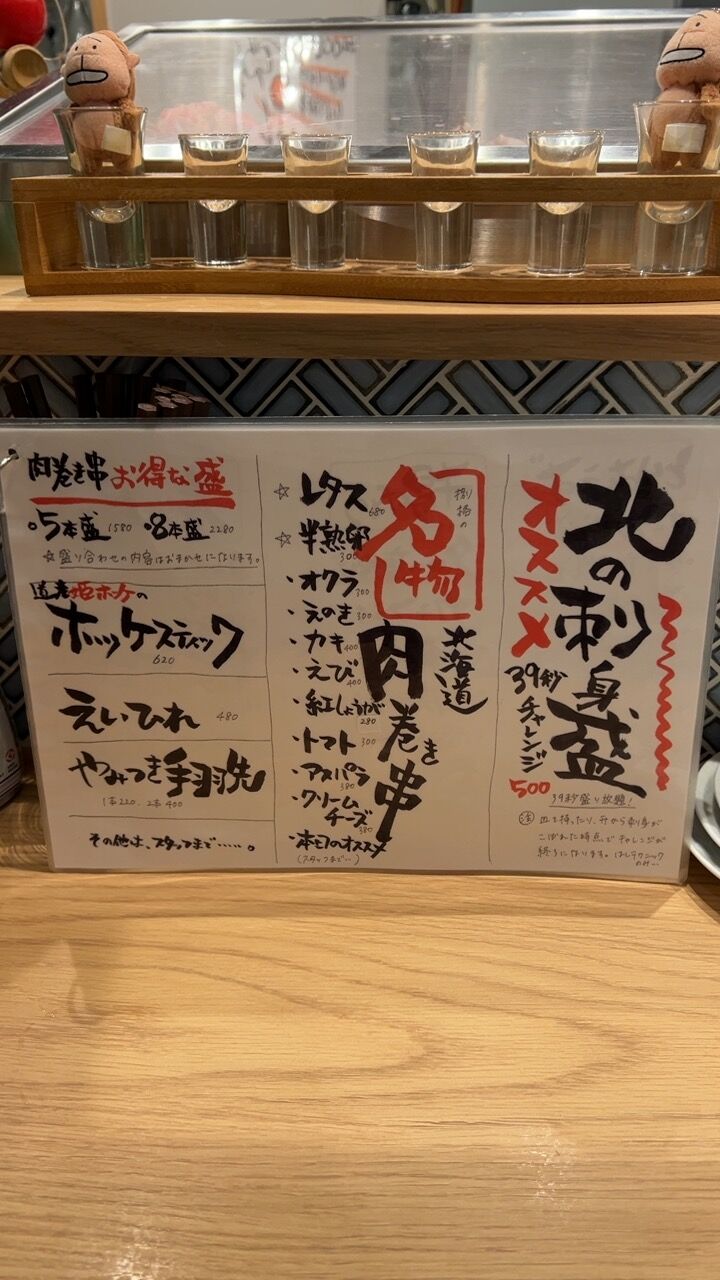 北の刺身盛
オススメ
39秒チャレンジ
500
39秒盛り放題!
(注) 皿を持ったり、升から刺身が
こぼれた時点でチャレンジが
終了になります。はしテクニック
のみ…
名物
北海道
肉巻き串
☆レタス 680
☆半熟卵 300
・オクラ 300
・えのき 300
・カキ 400
・えび 400
・紅しょうが 280
・トマト 300
・アスパラ 380
・クリームチーズ 380
・本日のオススメ
(スタッフまで…)
肉巻き串お得な盛
•5本盛 1580 •8本盛 2280
☆盛り合わせの内容はおまかせになります。
道産姫ホッケの
ホッケスティック
620
えいひれ 480
やみつき手羽先
1本220、2本400
その他は、スタッフまで……。